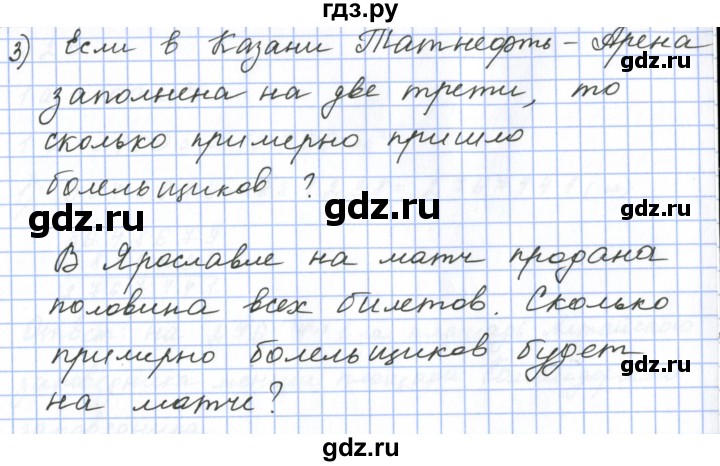 гдз.ру
3) Если в Казани Татнефть-Арена
заполнена на две трети, то
сколько примерно пришло
болельщиков ?
gdz.ru gdz.ru
В Ярославле на матч продана
половина всех билетов. Сколько
gdz.ru gdz.ru
примерно болельщиков будет
на матче?
gdz.ru